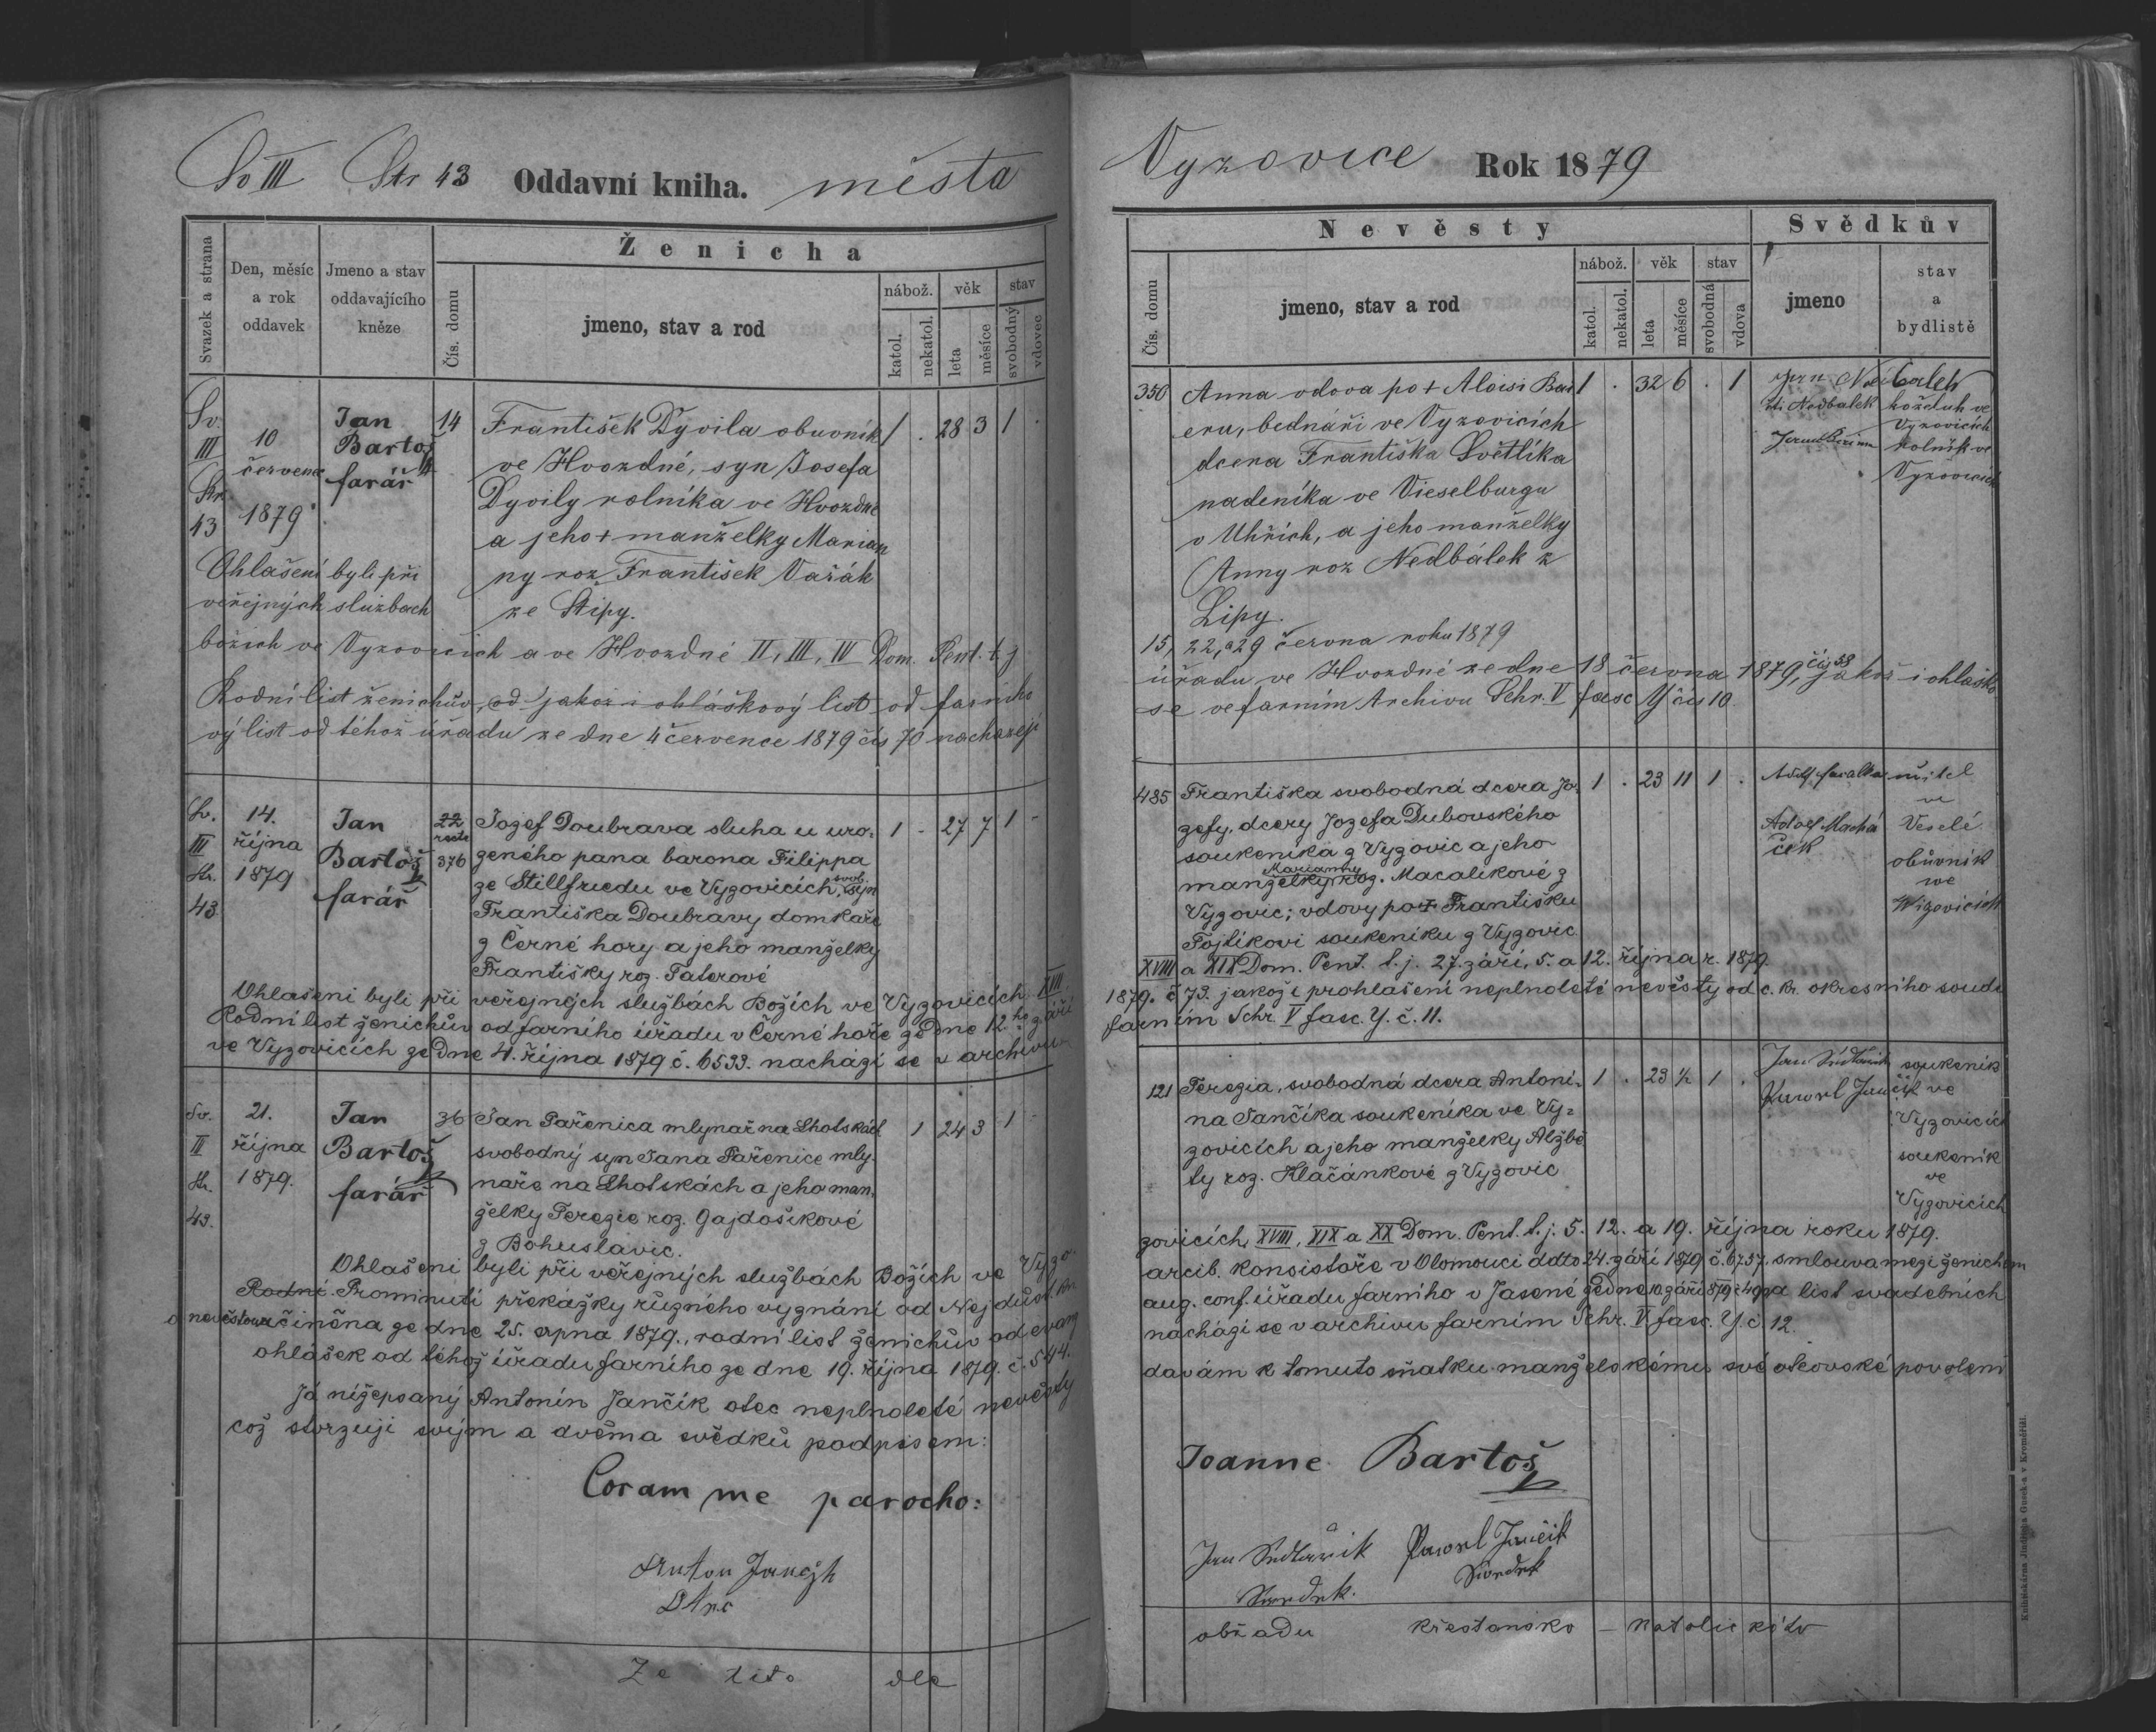 Sv III Str 43 Oddavní kniha. města
Svazek a strana
Den, měsíc a rok oddavek
Jmeno a stav oddavajícího kněze
Ženicha
Čís. domu
jmeno, stav a rod
nábož. věk stav
katol. nekatol. leta měsíce svobodný vdovec
Sv. III Str. 43
10 července 1879
Jan Bartoš farář
14
František Dyvila obuvník 1 . 28 3 1 .
ve Hvozdné, syn Josefa
Dyvily rolníka ve Hvozdné
a jeho + manželky Marian
ny roz František Vařák
ze Štípy.
Ohlašeni byli při
veřejných službach
božich ve Vyzovicích a ve Hvozdné II, III, IV Dom. Pent. t. j
Rodní list ženichův, od jakož i ohláškový list od farního
vý list od téhož úřadu ze dne 4 července 1879 čís 70 nachazejí
Sv. III Str. 43
14. října 1879
Jan Bartoš farář
22 376
Jozef Doubrava sluha u uro- 1 - 27 7 1 -
zeného pana barona Filippa
ze Stillfriedu ve Vyzovicích, svob. syn
Františka Doubravy domkaře
z Černé hory a jeho manželky
Františky roz. Taterové
Ohlašeni byli při veřejných službách Božích ve Vyzovicích XVII.
Rodní list ženichův od farního úřadu v Černé hoře ze dne 12.ho září
ve Vyzovicích ze dne 4. října 1879 č. 6533. nachazí se v archivu
Sv. II Str. 43.
21. října 1879.
Jan Bartoš farář
36
Jan Pařenica mlynař na Lhotskách 1 24 3 1 -
svobodný syn Jana Pařenice mly-
náře na Lhotskách a jeho man-
želky Terezie roz. Gajdošikové
z Bohuslavic.
Ohlašeni byli při veřejných službách Božích ve Vyzo-
Rodní Prominutí překážky různého vyznání od Nejdůst. kn.
a nevěstou učiněna ze dne 25. srpna 1879., rodní list ženichův od evang
ohlášek od téhož úřadu farního ze dne 19. října 1879. č. 544.
Já nížepsaný Antonín Jančík otec neplnoleté nevěsty
což stvrzuji svým a dvěma svědků podpisem:
Coram me parocho:
Anton Jančjk
Otec
Ze tito dle
Vyzovice Rok 1879
Nevěsty
Svědkův
Čís. domu
jmeno, stav a rod
nábož. věk stav
katol. nekatol. leta měsíce svobodná vdova
jmeno
stav a bydlistě
350 Anna vdova po + Aloisi Bau 1 . 32 6 . 1
eru, bednáři ve Vyzovicích
dcera Františka Světlíka
nadeníka ve Vieselburgu
v Uhřích, a jeho manželky
Anny roz Nedbálek z
Lipy.
Nedbalek
koželuh ve Vyzovicích
rolník ve Vyzovicích
15, 22, a 29 června roku 1879
úřadu ve Hvozdné ze dne 18 června 1879, čís 58 jakož i ohláško
se ve farním Archivu Schr. V fasc Y čís 10
485 Františka svobodná dcera Jo- 1 . 23 11 1 .
zefy, dcery Jozefa Dubovského
soukeníka z Vyzovic a jeho
manželky Marianny roz. Macalíkové z
Vyzovic; vdovy po + Františku
Fojtíkovi soukeníku z Vyzovic
učitel ve Veselé
Adolf Macháček
obůvník we Wizovicích
XVIII a XIX Dom. Pent. t. j. 27. září, 5. a 12. října r. 1879.
1879. č 73. jakož i prohlašení neplnoleté nevěsty od c. kr. okresního soudu
farním Schr. V fasc. Y. č. 11.
121 Terezia, svobodná dcera Antoni- 1 . 23 ½ 1 .
na Jančíka soukeníka ve Vy-
zovicích a jeho manželky Alžbě
ty roz. Hlačánkové z Vyzovic
Jan Sedlařik soukeník ve Vyzovicích
Pawel Jančik soukeník ve Vyzovicích
zovicích, XVIII, XIX a XX Dom. Pent. t. j. 5. 12. a 19. října roku 1879.
arcib. konsistoře v Olomouci ddto 24. září 1879 č. 6737. smlouva mezi ženichem
aug. conf. úřadu farního v Jasené ze dne 10. září 1879 č 49 a list svadebních
nachází se v archivu farním Schr. V fasc. Y. č 12.
davám k tomuto sňatku manželskému své otcovské povolení
Joanne Bartoš
Jan Sedlařik Pawel Jančik
Swedek. Swedek
obřadu křestansko - katolického
Knihtiskárna Jindřicha Gusek-a v Kroměříži.